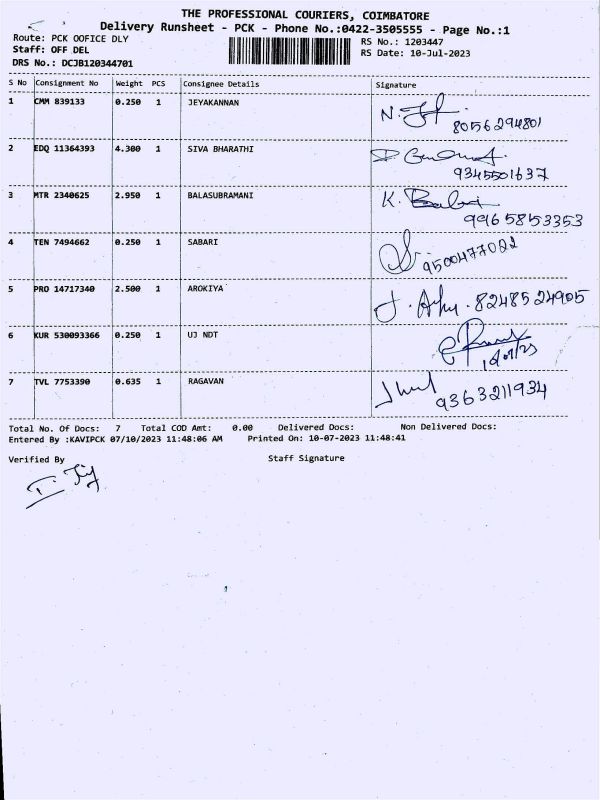 THE PROFESSIONAL COURIERS, COIMBATORE
Delivery Runsheet - PCK - Phone No.:0422-3505555 - Page No.:1
Route: PCK OOFICE DLY RS No.: 1203447
Staff: OFF DEL RS Date: 10-Jul-2023
DRS No.: DCJB120344701
S No Consignment No Weight PCS Consignee Details Signature
1 CMM 839133 0.250 1 JEYAKANNAN
8056294801
2 EDQ 11364393 4.300 1 SIVA BHARATHI
9345501637
3 MTR 2340625 2.950 1 BALASUBRAMANI K. Balu
9965853353
4 TEN 7494662 0.250 1 SABARI
9500477022
5 PRO 14717340 2.500 1 AROKIYA 8248524905
6 KUR 530093366 0.250 1 UJ NDT
7 TVL 7753390 0.635 1 RAGAVAN
9363211934
Total No. Of Docs: 7 Total COD Amt: 0.00 Delivered Docs: Non Delivered Docs:
Entered By :KAVIPCK 07/10/2023 11:48:06 AM Printed On: 10-07-2023 11:48:41
Verified By Staff Signature